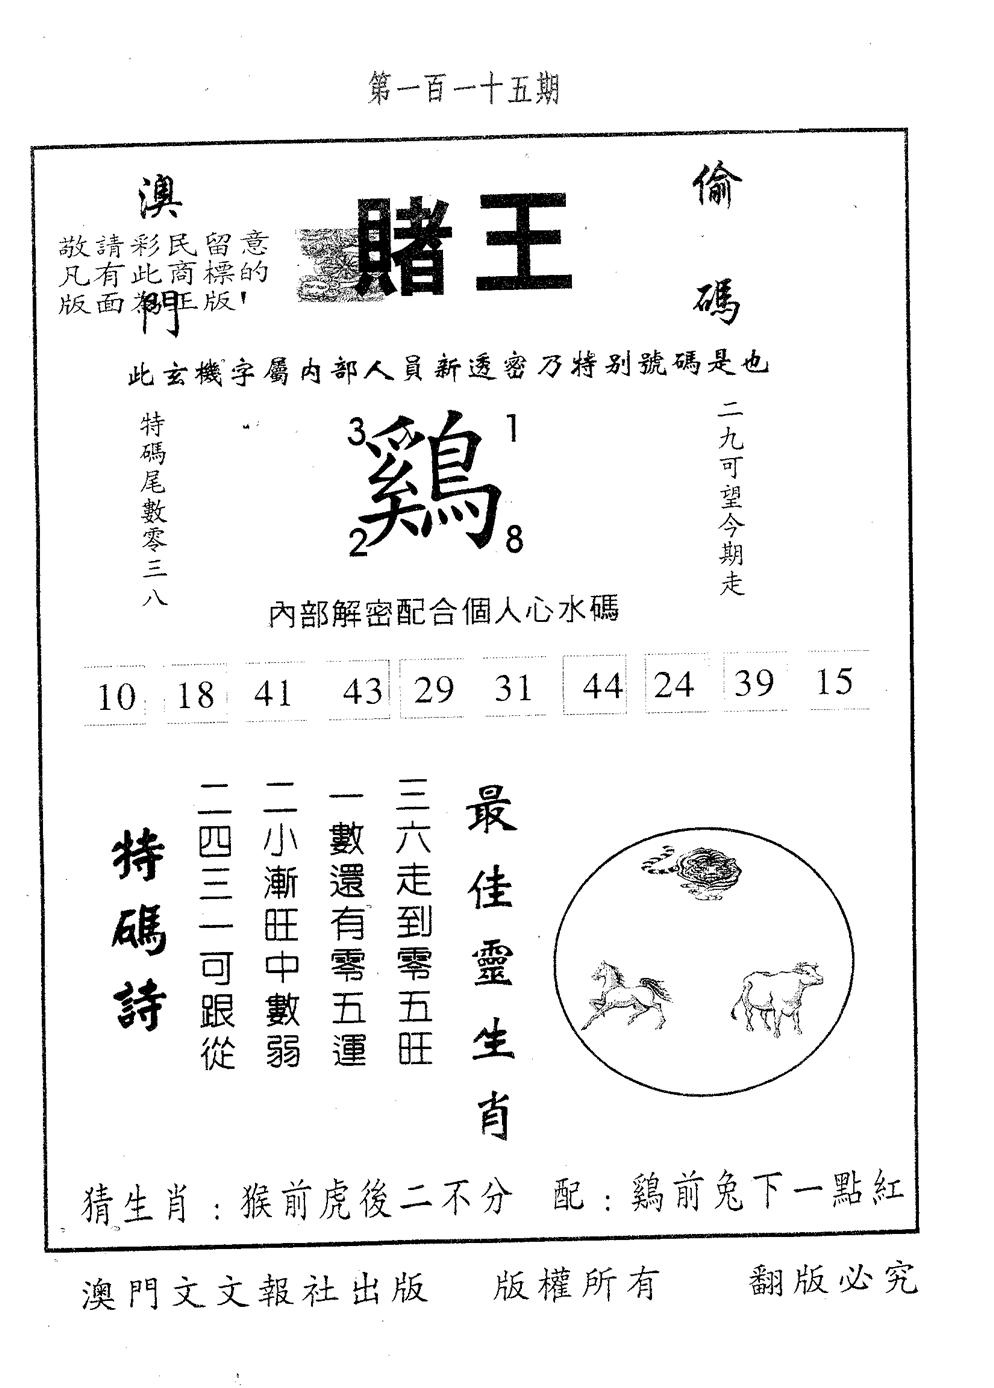 第一百一十五期
澳門
賭王
偷碼
敬請彩民留意
凡有此商標的
版面為正版!
此玄機字屬内部人員新透密乃特别號碼是也
特碼尾數零三八
3 1
鷄
2 8
二九可望今期走
內部解密配合個人心水碼
10 18 41 43 29 31 44 24 39 15
最佳靈生肖
三六走到零五旺
一數還有零五運
二小漸旺中數弱
二四三一可跟從
特碼詩
猜生肖：猴前虎後二不分 配：鷄前兔下一點紅
澳門文文報社出版 版權所有 翻版必究